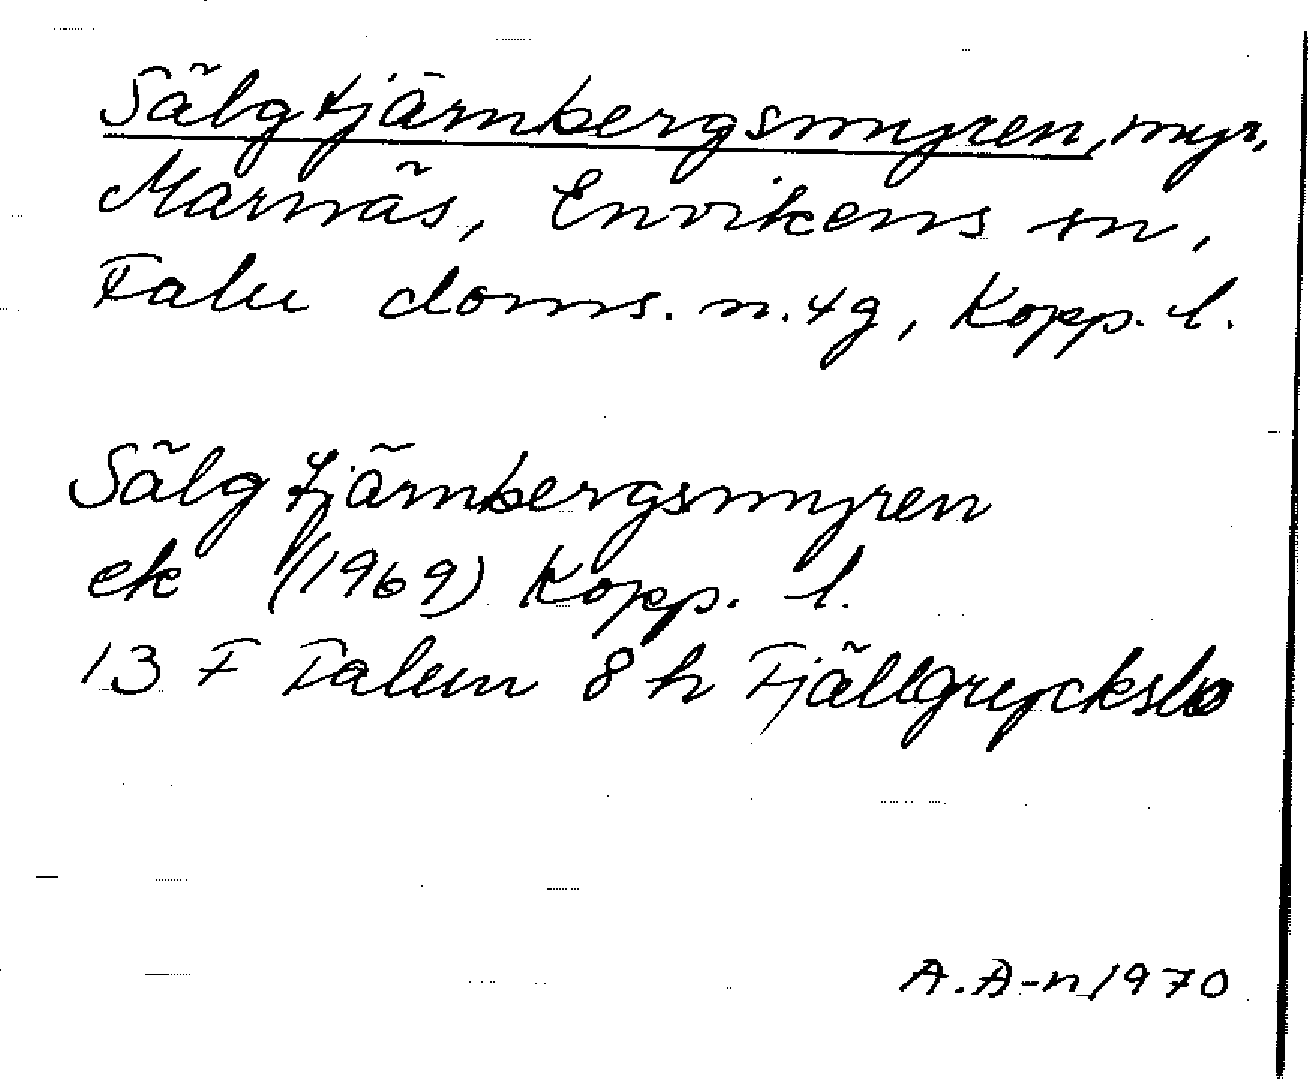 Sälgtjärnbergsmyren, myr,
Marnäs, Envikens sn,
Falu doms. n. tg, Kopp. l.
Sälgtjärnbergsmyren
ek (1969) Kopp. l.
13 F Falun 8 h Fjällgrycksbo
A. A-n 1970